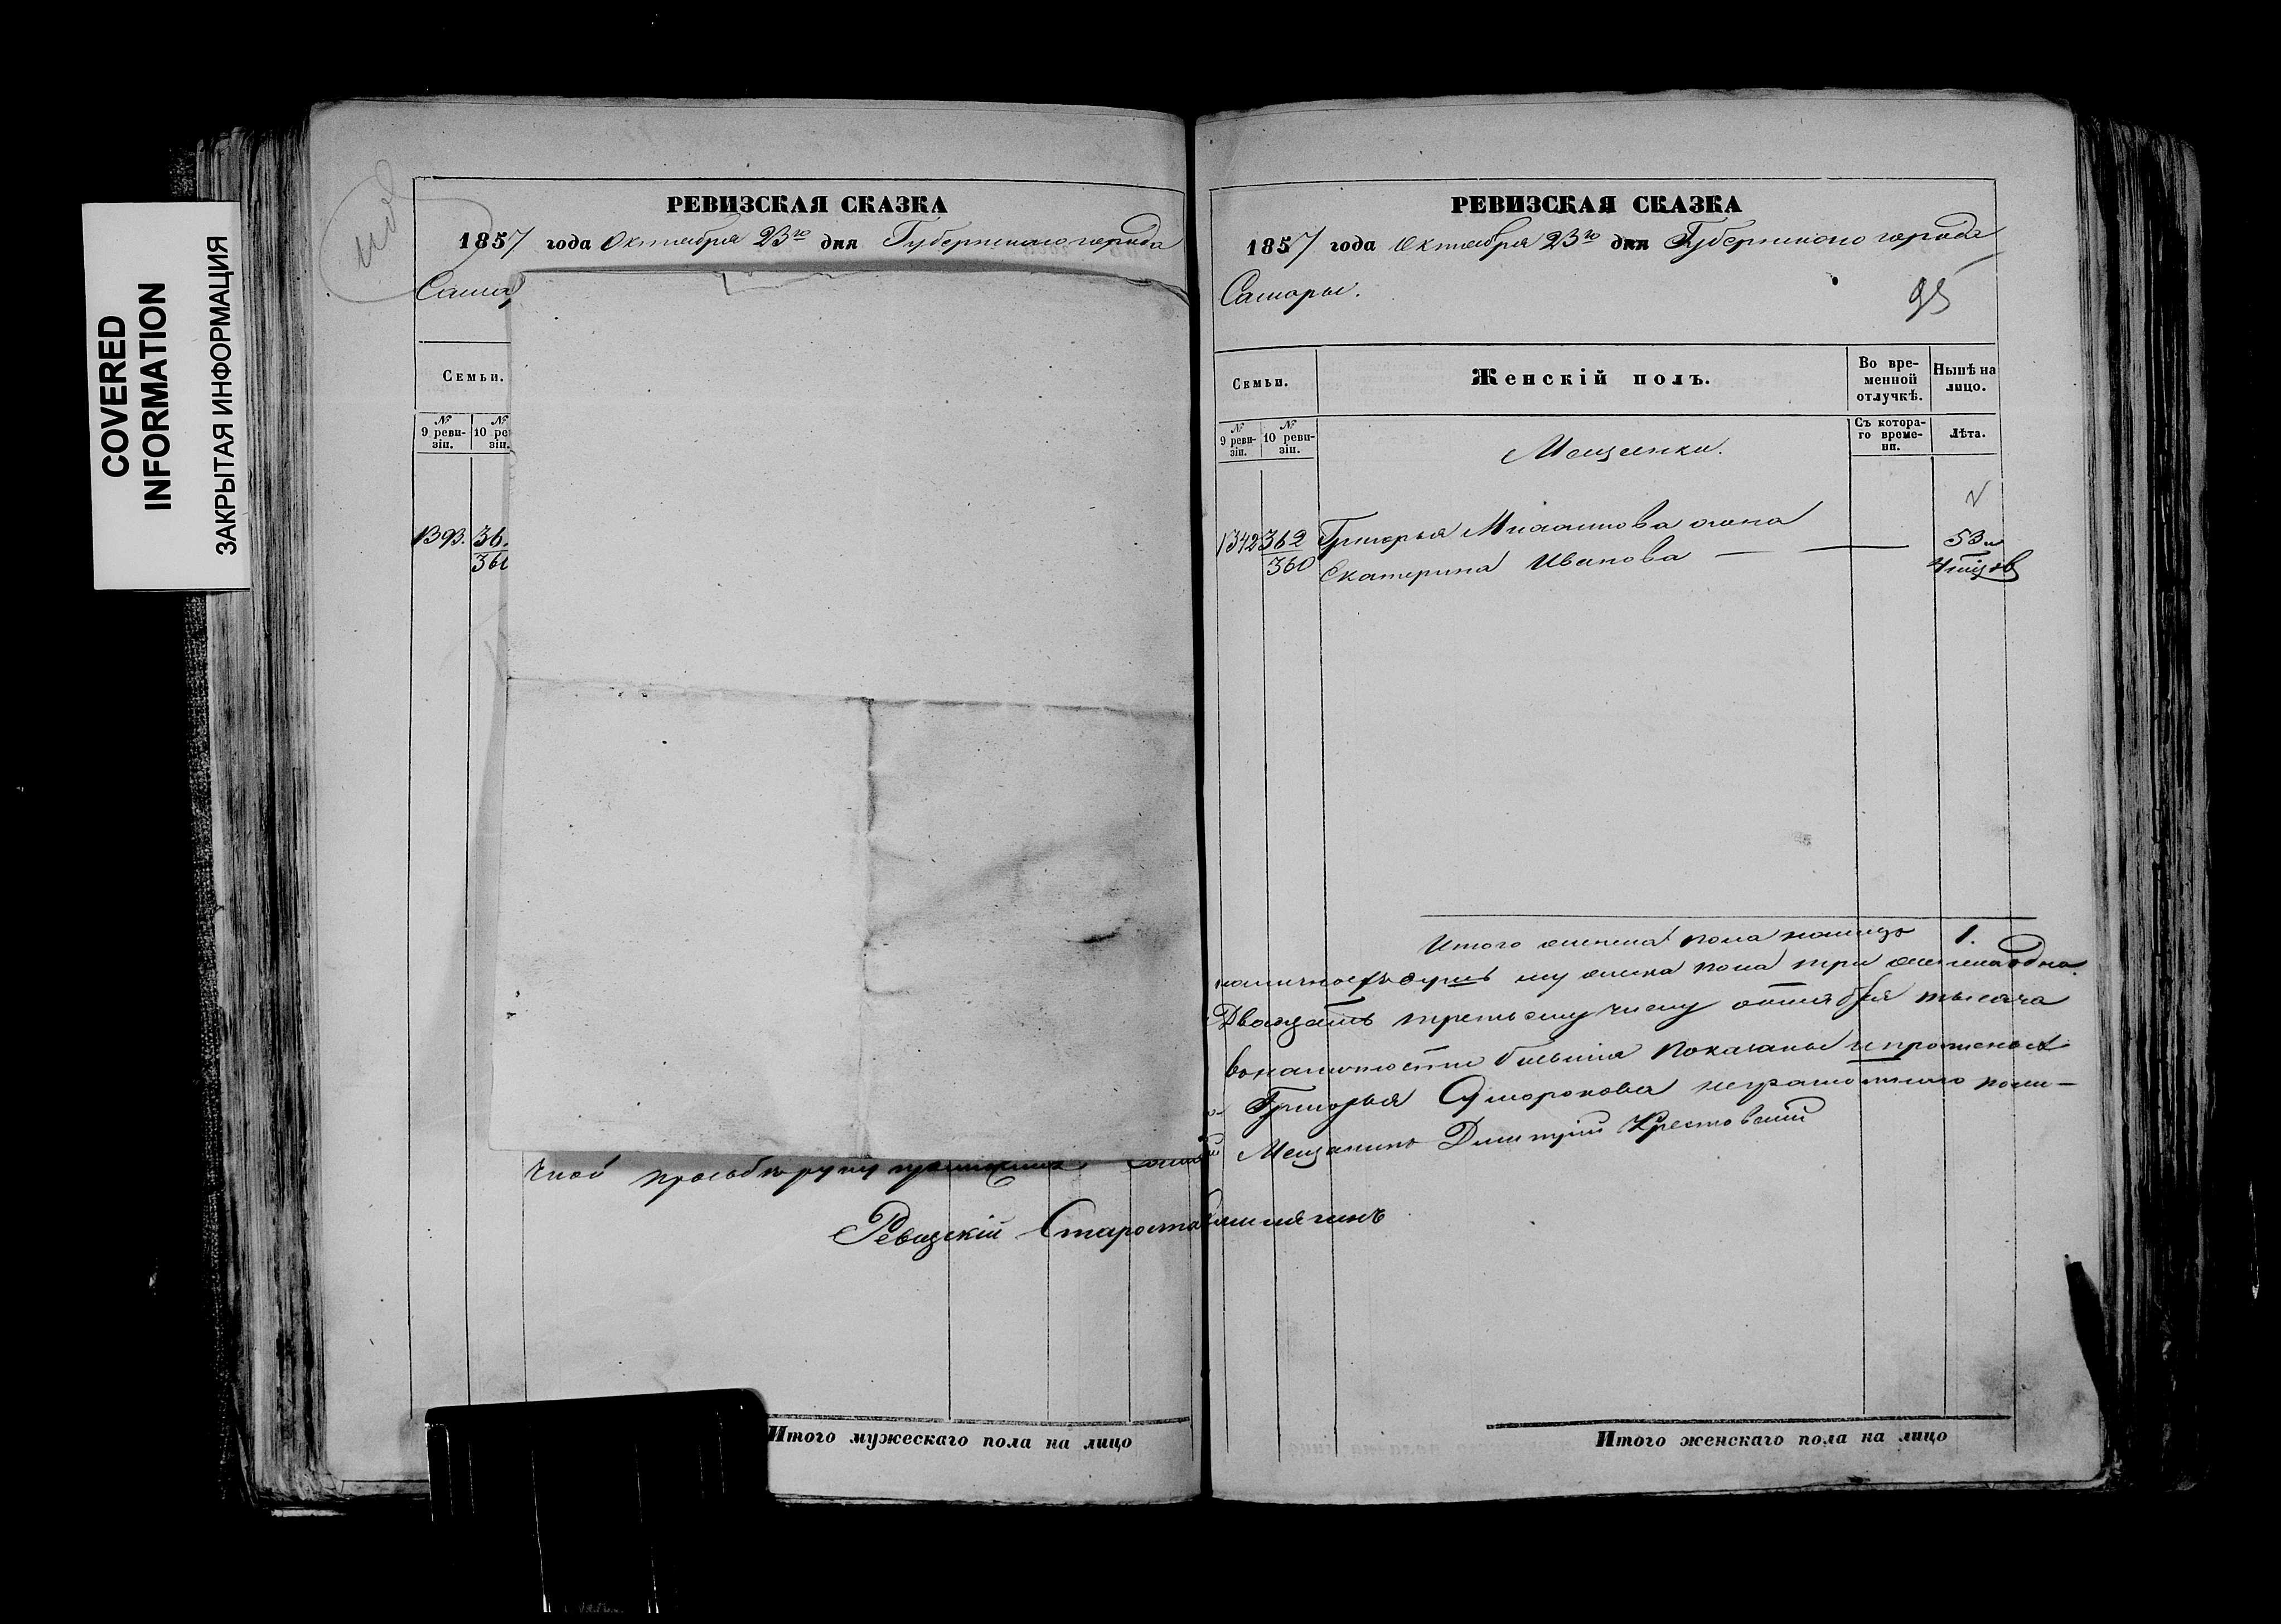 COVERED
INFORMATION
ЗАКРЫТАЯ ИНФОРМАЦИЯ
РЕВИЗСКАЯ СКАЗКА
1857 года Октября 23го дня Губернскаго города
Сама
Семьи.
№ 9 реви-зіи.
№ 10 ре зіи.
1393. 36
360
чной просьбѣ руку приложилъ
Ревизскій Староста
Итого мужескаго пола на лицо
РЕВИЗСКАЯ СКАЗКА
1857 года Октября 23го дня Губернскаго города
Самары.
95
Семьи.
Женскій полъ.
Во вре-менной отлучкѣ.
Нынѣ на лицо.
№ 9 реви-зіи.
№ 10 реви-зіи.
Мещанки.
Съ котора-го време-ни.
Лѣта.
1342 362 Григорья жена
360 Екатерина Иванова 53
Итого женска пола налицо 1.
наличность душъ мужеска пола три женска одна.
Двадцать третьему числу октября тысяча
въ наличности бывшія показаны и прописных
Григорья неграмотнаго
Мещанинъ Дмитрій Крестовскій
Итого женскаго пола на лицо